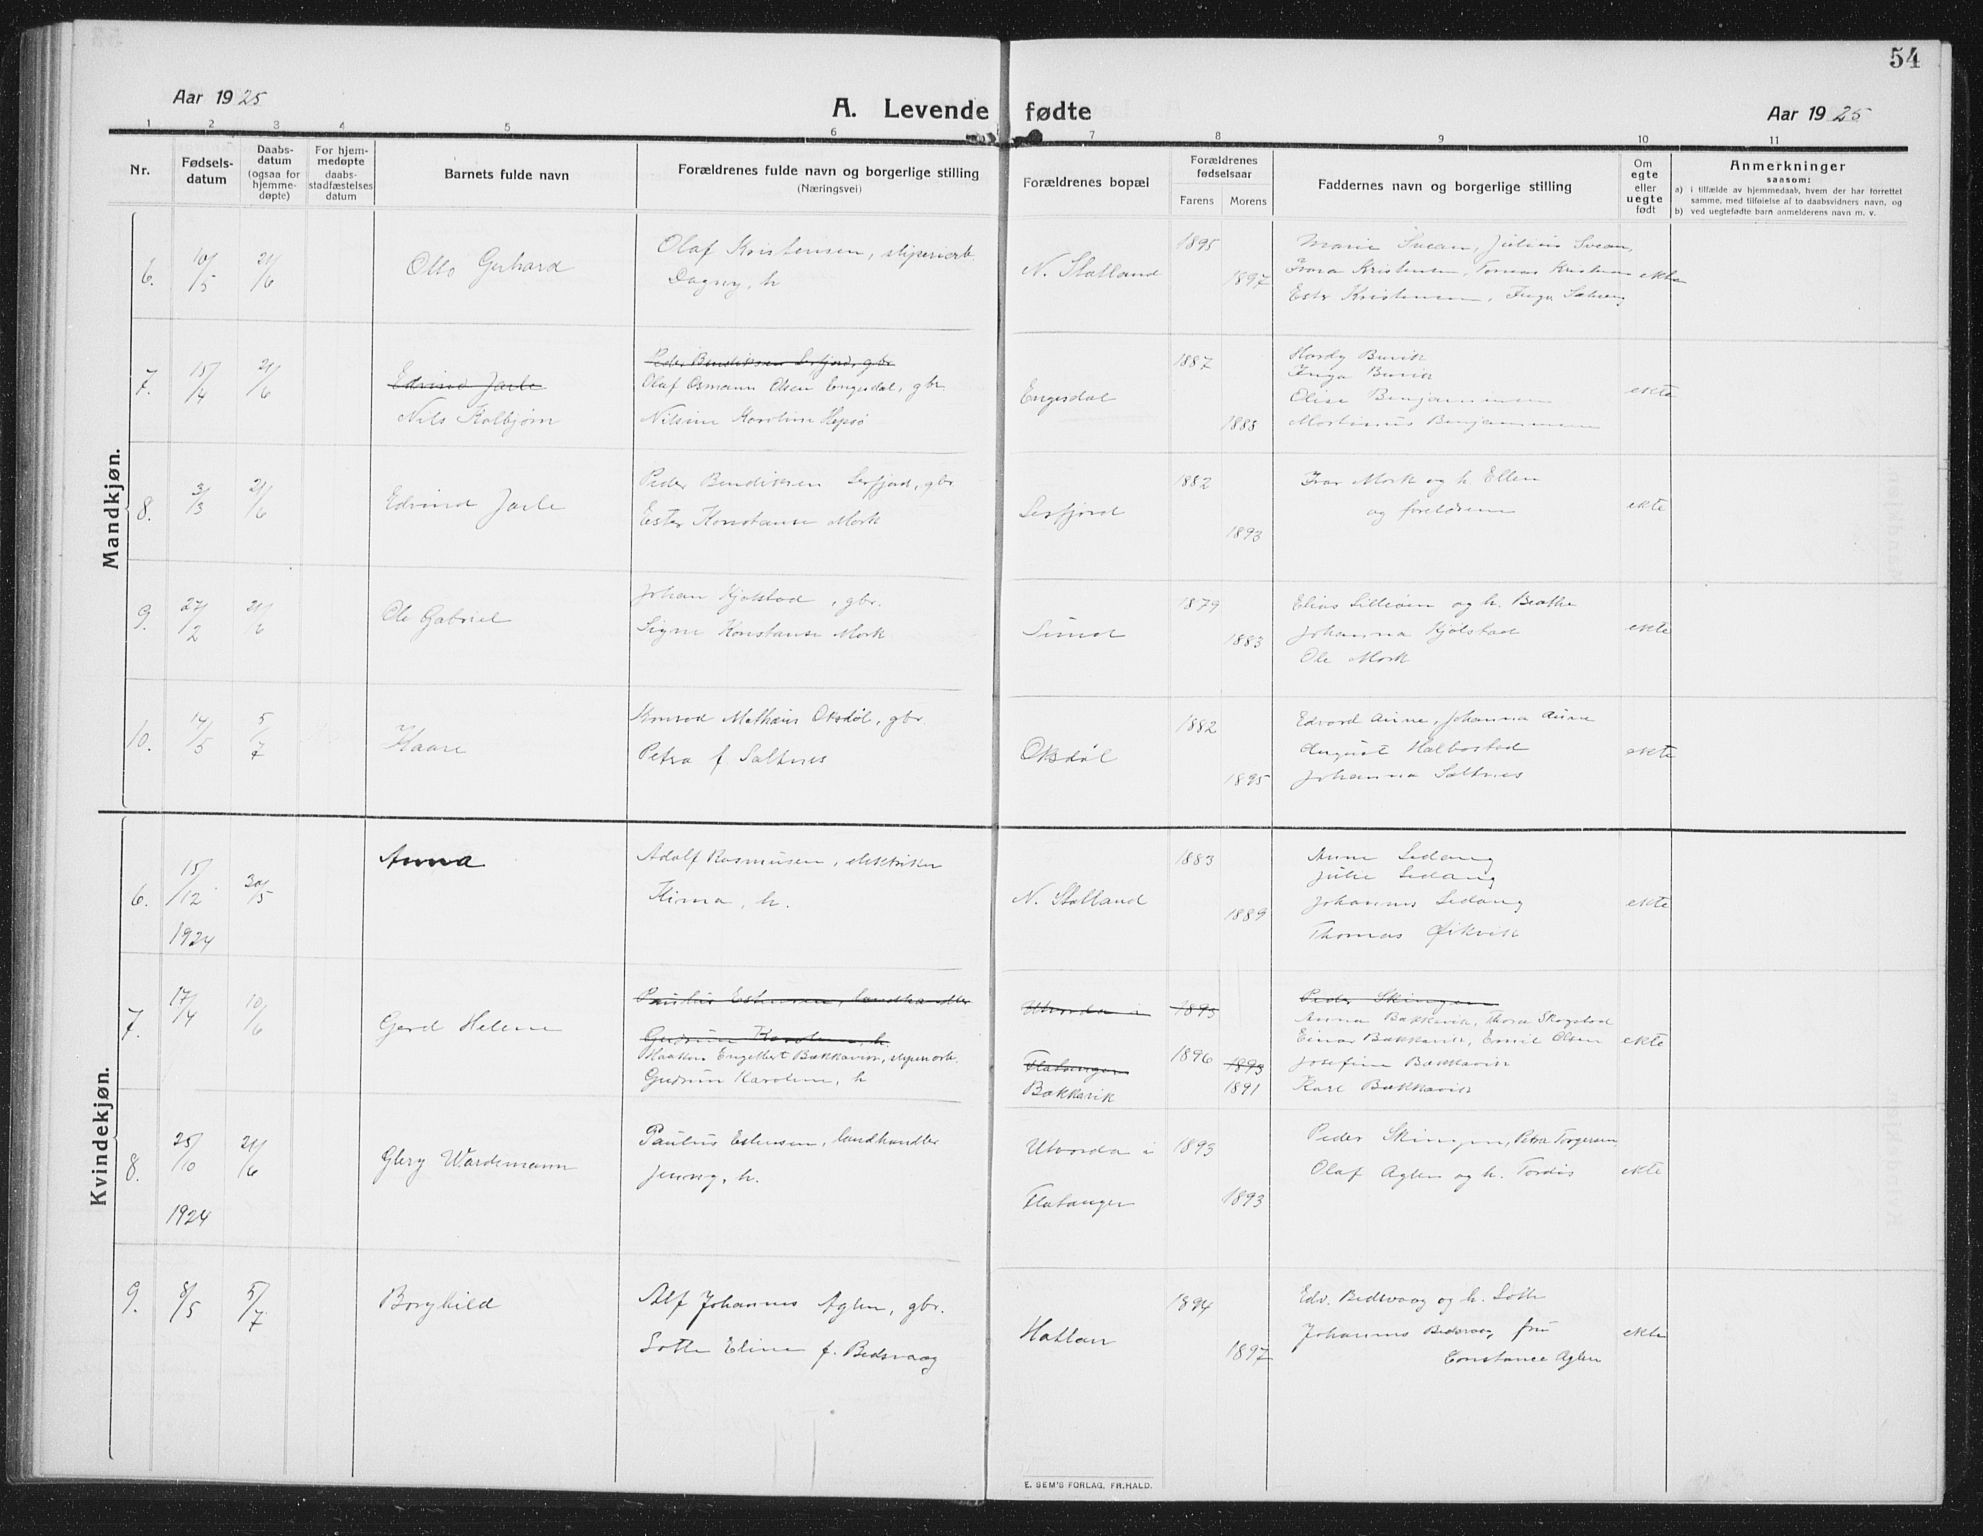 54
Aar 1925
A. Levende fødte
Aar 1925
1 2 3 4 5 6 7 8 9 10 11
Nr.
Fødsels-
datum
Daabs-
datum
(ogsaa for
hjemme-
døpte)
For hjem-
medøpte
daabs-
stadfæstelses
datum
Barnets fulde navn
Forældrenes fulde navn og borgerlige stilling
(Næringsvei)
Forældrenes bopæl
Forældrenes
fødselsaar
Farens Morens
Faddernes navn og borgerlige stilling
Om
egte
eller
uegte
født
Anmerkninger
saasom:
a) i tilfælde av hjemmedaab, hvem der har forrettet
samme, med tilføielse af to daabsvidners navn, og
b) ved uegtefødte barn anmelderens navn m. v.
Mandkjøn.
6. 10/5 21/6 Otto Gerhard
Olaf Kristensen, sliperiarb.
Dagny, h
N. Statland 1895 1897
Marie Svean, Julius Svean,
Ivara Kristensen, Tomas Kristensen
Ester Kristensen, Inga
ekte
7. 15/4 21/6
Edvind Jarle
Nils Kolbjørn
Peder Bendiksen Serfjord, gbr
Olaf Osmann Olsen Engesdal, gbr.
Nilsine Karoline Hepsø
Engesdal 1887 1888
Hardy Buvik
Inga Buvik
Elise Benjaminsen
Martinus Benjaminsen
ekte
8. 3/3 21/6 Edvind Jarle
Peder Bendiksen Serfjord, gbr
Ester Konstanse Mork
Serfjord 1882 1893
Ivar Mork og h. Ellen
og foreldrene
ekte
9. 27/2 21/6 Ole Gabriel
Johan Kjølstad, gbr.
Signe Konstanse Mork
Sund 1879 1883
Elias Lilleøen og h. Beathe
Johanna Kjølstad
Ole Mork
ekte
10. 14/5 5/7 Kaare
Konrad Mathæus Oksdøl, gbr.
Petra f. Saltnes
Oksdøl 1882 1895
Edvard Aune, Johanna Aune
August Halbostad
Johanna Saltnes
ekte
Kvindekjøn.
6. 15/12 1924 30/5 Anna
Adolf Rasmussen, elektriker
Hirma, h.
N. Statland 1883 1889
Anne Sedang
Julie Sedang
Johannes Sedang
Thomas Øikvik
ekte
7. 17/4 10/6 Gerd Helene
Paulus Estensen, landhandler
Gudrun Karoline, h.
Haakon Engelbert Bækkavik, sliperiarb.
Gudrun Karoline, h
Utvorda i
Flatanger
Bækkavik
1893 1896 1893 1891
Peder Skingen
Anna Bækkavik, Thora Skogstad
Einar Bækkavik, Emil Olsen
Josefine Bækkavik
Karl Bækkavik
ekte
8. 25/10 1924 21/6 Glery Wardemann
Paulus Estensen, landhandler
Jenny, h.
Utvorda i
Flatanger
1893 1893
Peder Skingen, Petra Torgersen,
Olaf Aglen og h. Tordis
ekte
9. 8/5 5/7 Borghild
Alf Johannes Aglen, gbr.
Lotte Eline f. Bedsvaag
Hatlan 1894 1897
Edv. Bedsvaag og h. Lotte
Johannes Bedsvaag, fru
Constance Aglen
ekte
E. SEM'S FORLAG, FR.HALD.